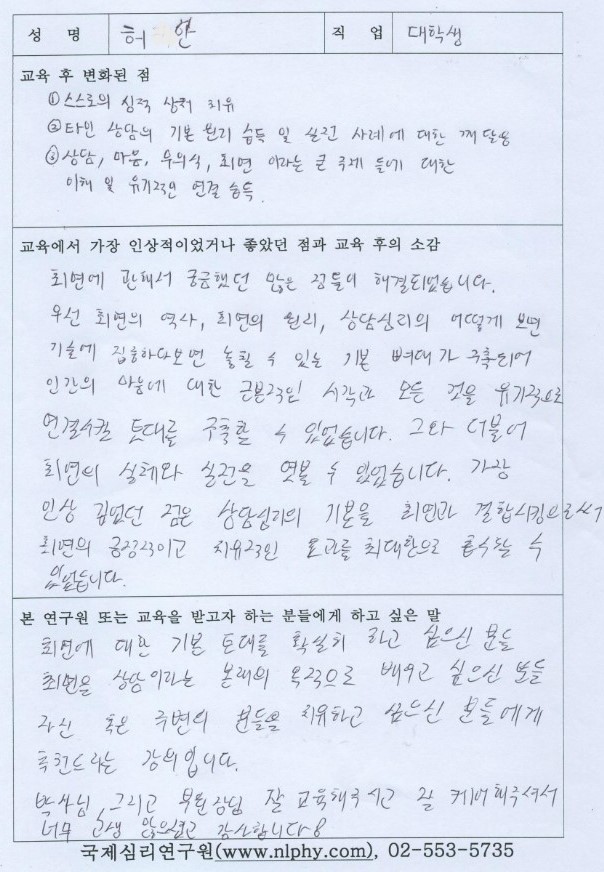 성 명 허 안 직 업 대학생
교육 후 변화된 점
① 스스로의 심적 상처 치유
② 타인 상담의 기본 원리 습득 및 실전 사례에 대한 깨달음
③ 상담, 마음, 무의식, 최면 이라는 큰 주제 들에 대한
이해 및 유기적인 연결 습득.
교육에서 가장 인상적이었거나 좋았던 점과 교육 후의 소감
최면에 관해서 궁금했던 많은 점들이 해결되었습니다.
우선 최면의 역사, 최면의 원리, 상담심리의 어떻게 보면
기술에 집중하다보면 놓칠 수 있는 기본 뼈대가 구축되어
인간의 마음에 대한 근본적인 시각과 모든 것을 유기적으로
연결시킬 토대를 구축할 수 있었습니다. 그와 더불어
최면의 실체와 실전을 엿볼 수 있었습니다. 가장
인상 깊었던 점은 상담심리의 기본을 최면과 결합시킴으로써
최면의 긍정적이고 치유적인 효과를 최대한으로 흡수할 수
있었습니다.
본 연구원 또는 교육을 받고자 하는 분들에게 하고 싶은 말
최면에 대한 기본 토대를 확실히 하고 싶으신 분들
최면을 상담이라는 본래의 목적으로 배우고 싶으신 분들
자신 혹은 주변의 분들을 치유하고 싶으신 분들에게
추천드리는 강의입니다.
박사님, 그리고 부원장님 잘 교육해주시고 잘 케어해주셔서
너무 고생 많으셨고 감사합니다
국제심리연구원(www.nlphy.com), 02-553-5735